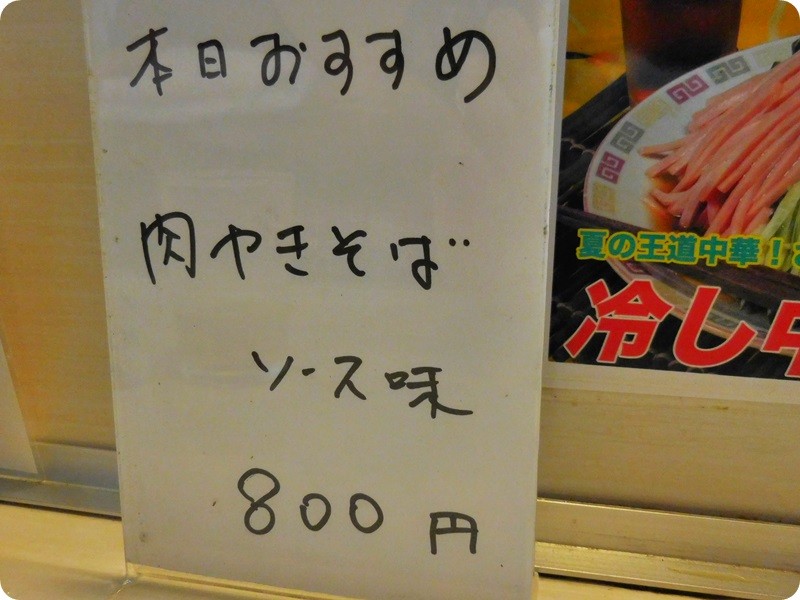 本日おすすめ
肉やきそば
ソース味
800円
夏の王道中華！
冷し中